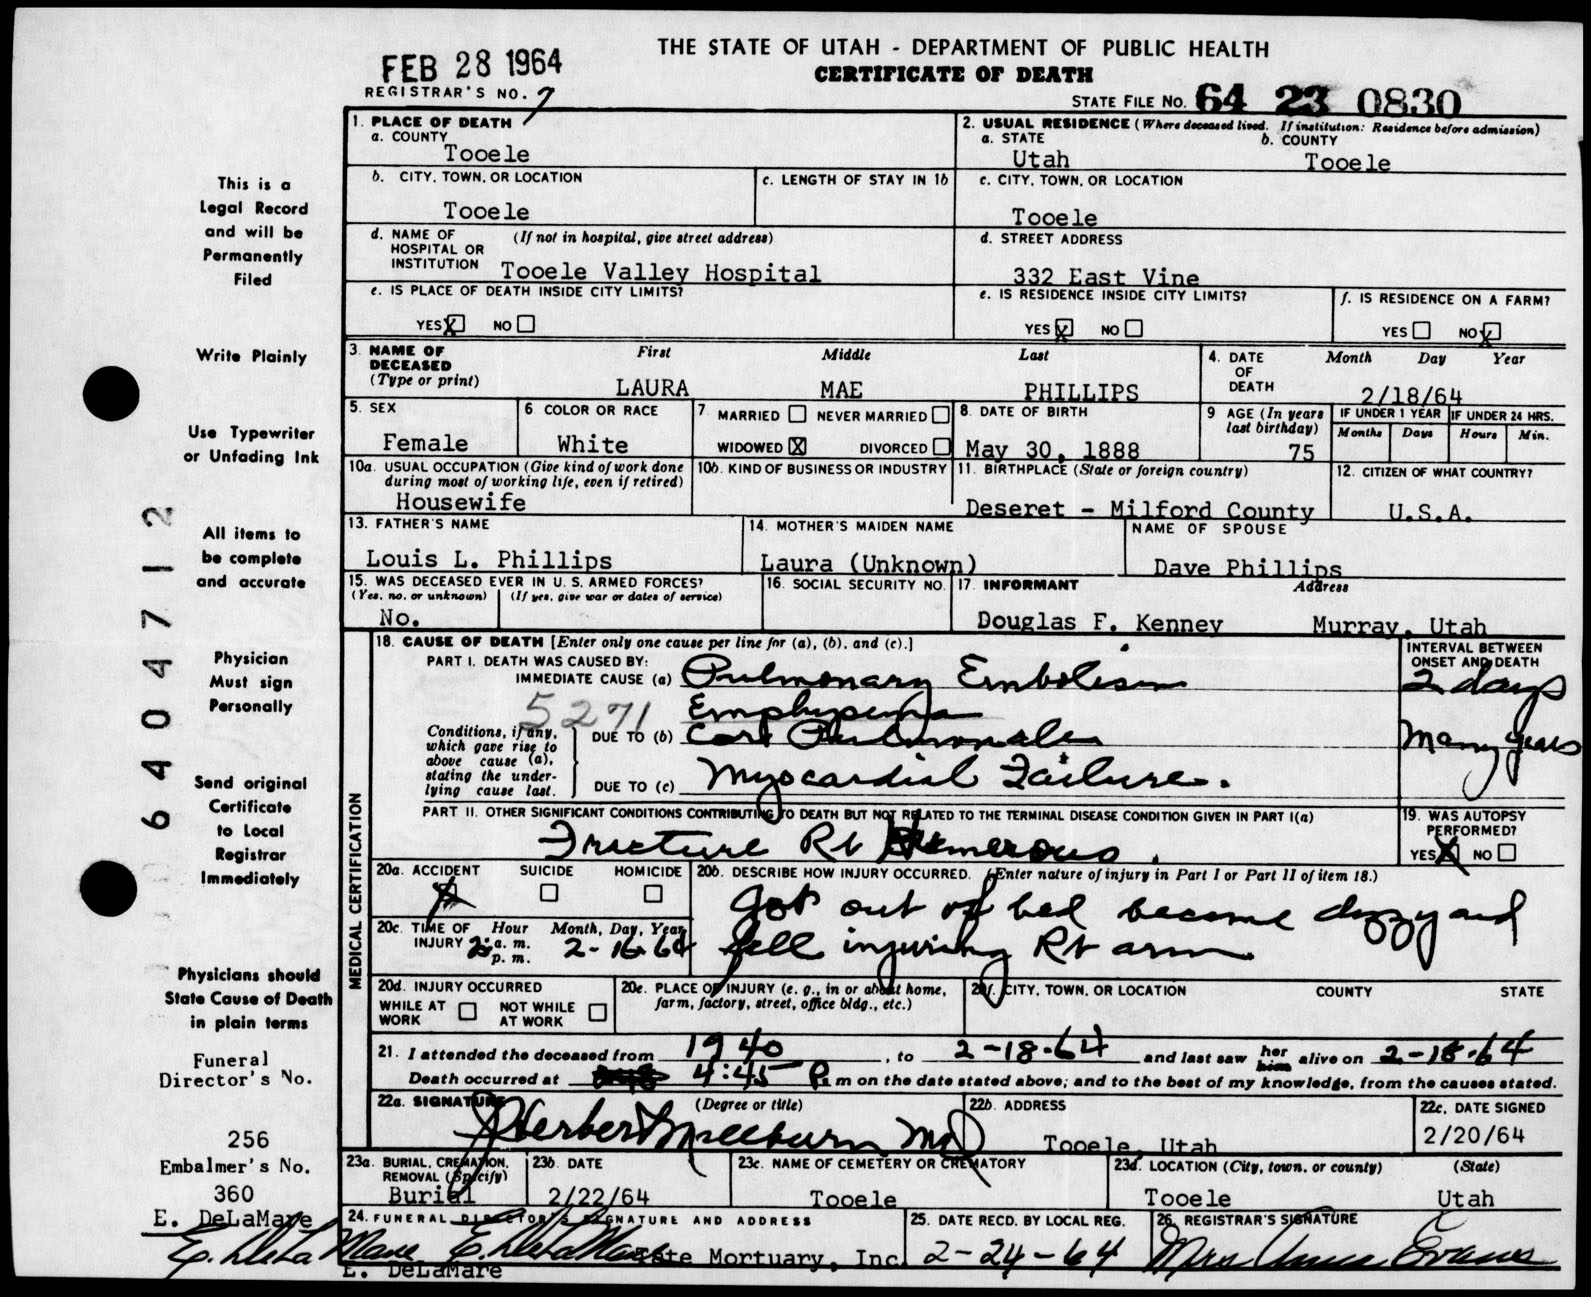 FEB 28 1964
THE STATE OF UTAH - DEPARTMENT OF PUBLIC HEALTH
CERTIFICATE OF DEATH
REGISTRAR'S NO. 7
STATE FILE NO. 64 23 0830
1. PLACE OF DEATH
a. COUNTY
Tooele
2. USUAL RESIDENCE (Where deceased lived. If institution: Residence before admission)
a. STATE b. COUNTY
Utah Tooele
b. CITY, TOWN, OR LOCATION
Tooele
c. LENGTH OF STAY IN 1b
c. CITY, TOWN, OR LOCATION
Tooele
d. NAME OF HOSPITAL OR INSTITUTION (If not in hospital, give street address)
Tooele Valley Hospital
d. STREET ADDRESS
332 East Vine
e. IS PLACE OF DEATH INSIDE CITY LIMITS?
YES X NO
e. IS RESIDENCE INSIDE CITY LIMITS?
YES X NO
f. IS RESIDENCE ON A FARM?
YES NO X
3. NAME OF DECEASED (Type or print)
First Middle Last
LAURA MAE PHILLIPS
4. DATE OF DEATH Month Day Year
2/18/64
5. SEX
Female
6. COLOR OR RACE
White
7. MARRIED NEVER MARRIED
WIDOWED X DIVORCED
8. DATE OF BIRTH
May 30, 1888
9 AGE (In years last birthday)
75
IF UNDER 1 YEAR IF UNDER 24 HRS.
Months Days Hours Min.
10a. USUAL OCCUPATION (Give kind of work done during most of working life, even if retired)
Housewife
10b. KIND OF BUSINESS OR INDUSTRY
11. BIRTHPLACE (State or foreign country)
Deseret - Milford County
12. CITIZEN OF WHAT COUNTRY?
U.S.A.
13. FATHER'S NAME
Louis L. Phillips
14. MOTHER'S MAIDEN NAME
Laura (Unknown)
NAME OF SPOUSE
Dave Phillips
15. WAS DECEASED EVER IN U. S. ARMED FORCES?
(Yes, no, or unknown) (If yes, give war or dates of service)
No.
16. SOCIAL SECURITY NO.
17. INFORMANT Address
Douglas F. Kenney Murray, Utah
18. CAUSE OF DEATH [Enter only one cause per line for (a), (b), and (c).]
INTERVAL BETWEEN ONSET AND DEATH
PART I. DEATH WAS CAUSED BY:
IMMEDIATE CAUSE (a) Pulmonary Embolism
2 days
5271 Emphysema
Conditions, if any, which gave rise to above cause (a), stating the underlying cause last.
DUE TO (b) Cor Pulmonale
Many years
DUE TO (c) Myocardial Failure.
PART II. OTHER SIGNIFICANT CONDITIONS CONTRIBUTING TO DEATH BUT NOT RELATED TO THE TERMINAL DISEASE CONDITION GIVEN IN PART I(a)
Fracture Rt Humerous.
19. WAS AUTOPSY PERFORMED?
YES X NO
20a. ACCIDENT SUICIDE HOMICIDE
X
20b. DESCRIBE HOW INJURY OCCURRED. (Enter nature of injury in Part I or Part II of item 18.)
Got out of bed became dizzy and
fell injuring Rt arm
20c. TIME OF INJURY Hour Month, Day, Year
2 a. m. p. m. 2-16-64
20d. INJURY OCCURRED
WHILE AT WORK NOT WHILE AT WORK
20e. PLACE OF INJURY (e. g., in or about home, farm, factory, street, office bldg., etc.)
20f. CITY, TOWN, OR LOCATION COUNTY STATE
21. I attended the deceased from 1940, to 2-18-64 and last saw her him alive on 2-18-64
Death occurred at 4:45 P. m on the date stated above; and to the best of my knowledge, from the causes stated.
22a. SIGNATURE (Degree or title)
J Herbert Millburn MD
22b. ADDRESS
Tooele, Utah
22c. DATE SIGNED
2/20/64
23a. BURIAL, CREMATION, REMOVAL (Specify)
Burial
23b. DATE
2/22/64
23c. NAME OF CEMETERY OR CREMATORY
Tooele
23d. LOCATION (City, town, or county) (State)
Tooele Utah
24. FUNERAL DIRECTOR'S SIGNATURE AND ADDRESS
E. DeLaMare Tate Mortuary, Inc.
E. DeLaMare
25. DATE RECD. BY LOCAL REG.
2-24-64
26. REGISTRAR'S SIGNATURE
Mrs Anna Evans
This is a
Legal Record
and will be
Permanently
Filed
Write Plainly
Use Typewriter
or Unfading Ink
All items to
be complete
and accurate
Physician
Must sign
Personally
Send original
Certificate
to Local
Registrar
Immediately
Physicians should
State Cause of Death
in plain terms
Funeral
Director's No.
256
Embalmer's No.
360
E. DeLaMare
E. DeLaMare
64 04712
MEDICAL CERTIFICATION